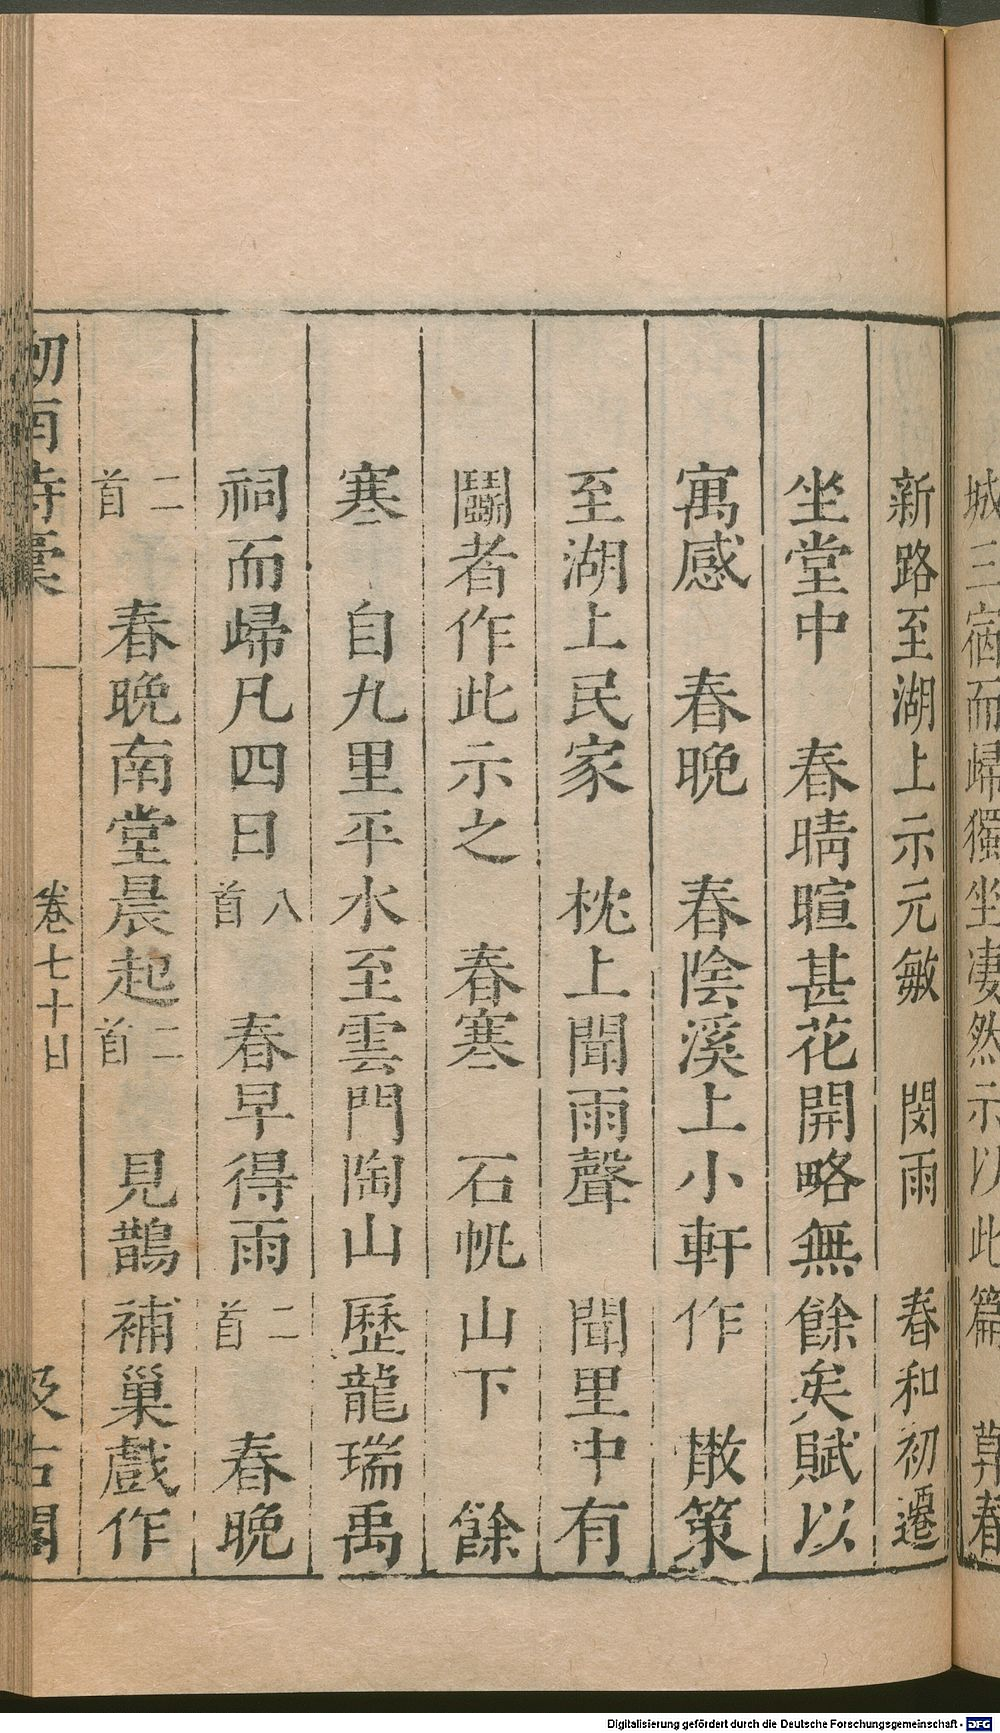 城三宿而歸獨坐凄然示以此篇　草春
新路至湖上示元敏　閔雨　春和初遷
坐堂中　春晴暄甚花開略無餘矣賦以
寓感　春晚　春陰溪上小軒作　散策
至湖上民家　枕上聞雨聲　聞里中有
鬭者作此示之　春寒　石帆山下　餘
寒　自九里平水至雲門陶山歷龍瑞禹
祠而歸凡四日八首　春早得雨二首　春晚
二首　春晚南堂晨起二首　見鵲補巢戲作
劒南詩稾　卷七十目　汲古閣
Digitalisierung gefördert durch die Deutsche Forschungsgemeinschaft - DFG